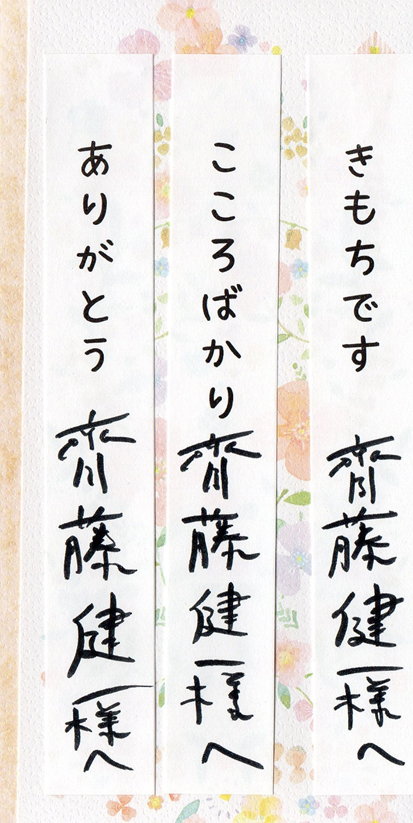 きもちです 齊藤健一様へ
こころばかり 齊藤健一様へ
ありがとう 齊藤健一様へ